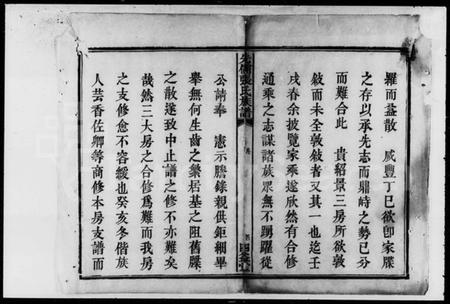 羅而益散 咸豐丁巳欲卽家牒
之存以承先志而鼎峙之勢已分
而難合此 貴紹景三房所欲敦
敘而未全敦敘者又其一也迄壬
戌春余披覽家乘遂欣然有合修
通乘之志謀諸族眾無不踴躍從
張氏族譜
公請奉 憲示謄錄親供鉅細畢
舉無何生齒之繁居基之阻舊牒
之散遂致中止譜之修不亦難矣
哉然三大房之合修為難而我房
之支修愈不容緩也癸亥冬偕族
人芸香佐卿等商修本房支譜而